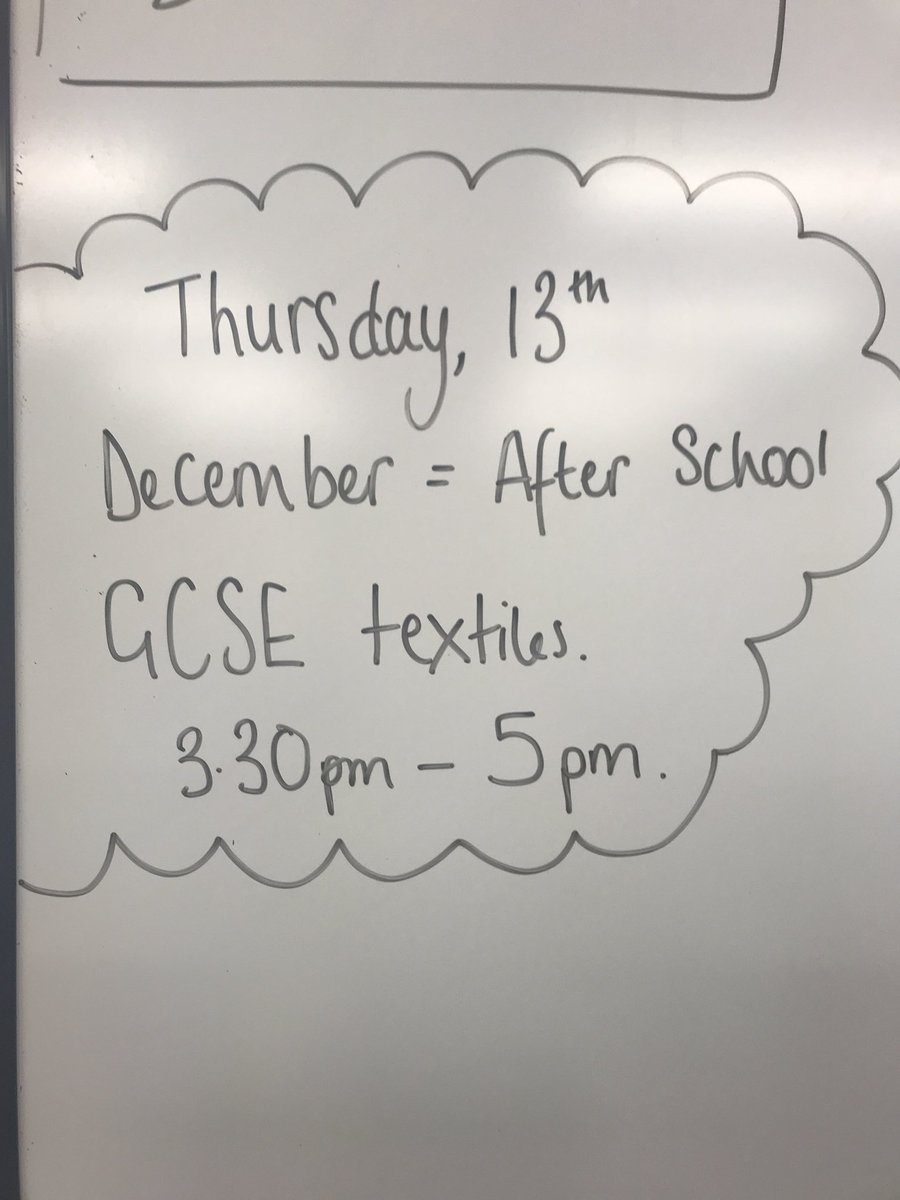 Thursday, 13th
December = After School
GCSE textiles.
3.30pm - 5pm.